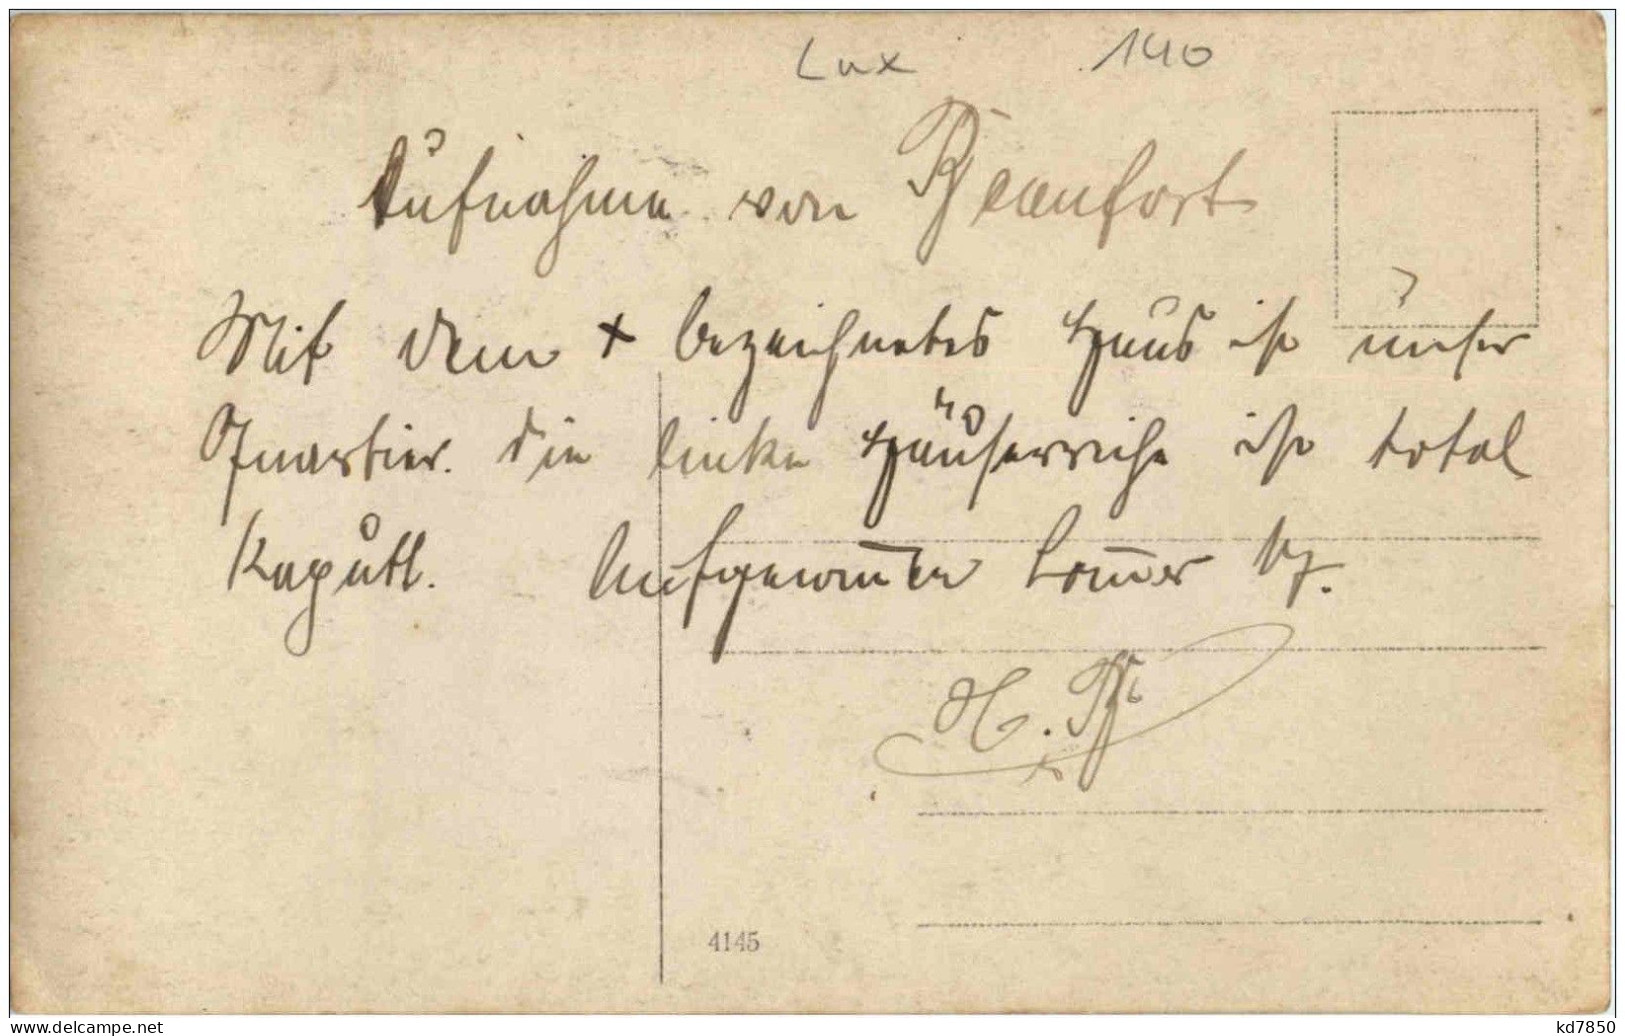 Lux 140
Aufnahme von Beaufort
Mit dem + bezeichnetes Haus ist unser
Quartier. die linke Häuserreihe ist total
Kaputt. Aufgenom̄en Som̄er 17.
H. B.
4145
delcampe.net
kd7850